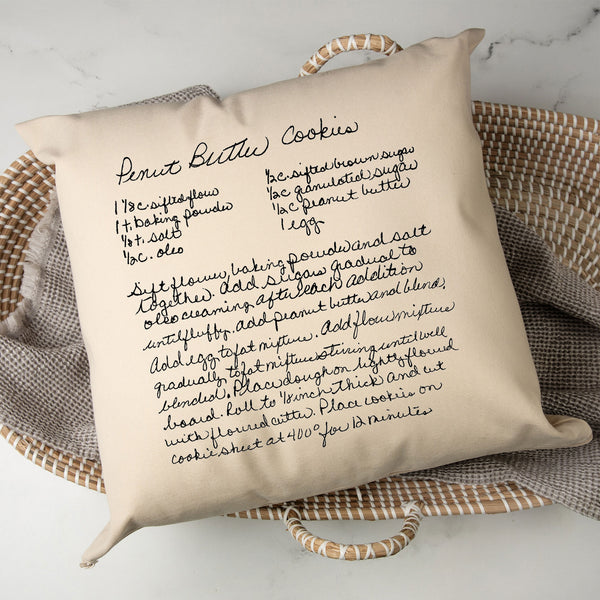 Penut Butter Cookies
1 1/8 c. sifted flour
1 t. baking powder
1/8 t. salt
1/2 c. oleo
1/2 c. sifted brown sugar
1/2 c granulated sugar
1/2 c peanut butter
1 egg
Sift flower, baking powder and salt
together. Add sugar gradual to
oleo creaming after each addition
until fluffy. Add peanut butter and blend,
Add egg to fat mixture. Add flour mixture
gradually to fat mixture stirring until well
blended. Place dough on lightly floured
board. Roll to 1/8 inch thick and cut
with floured cutter. Place cookies on
cookie sheet at 400° for 12 minutes